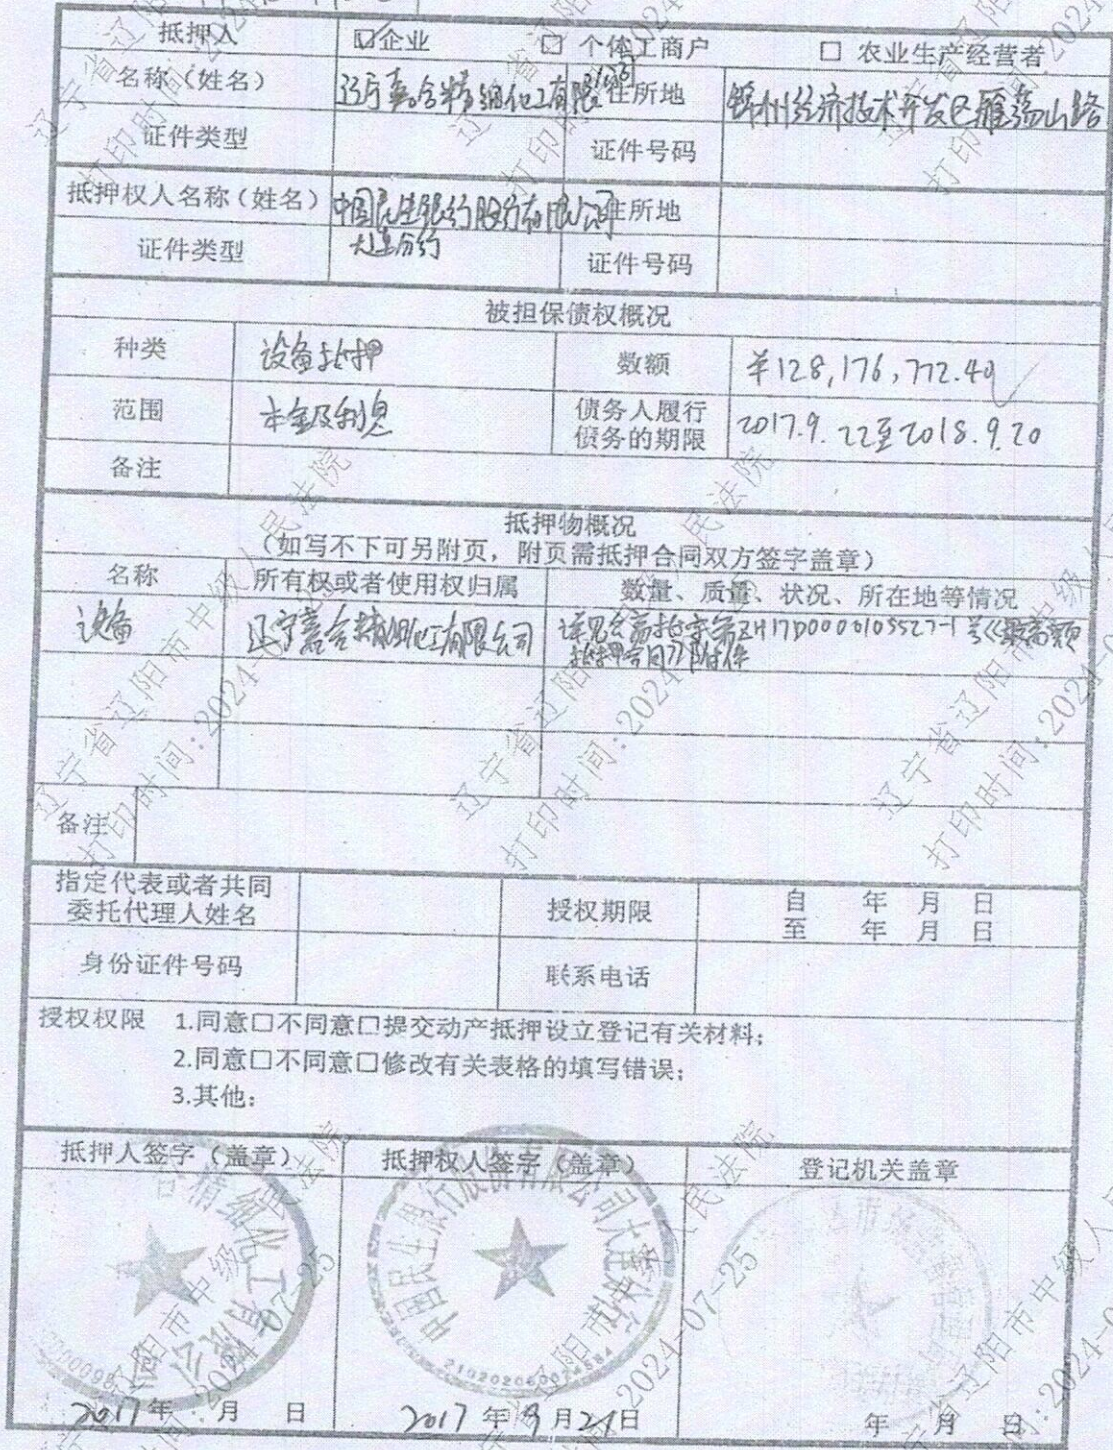 抵押人 ☑企业 □ 个体工商户 □ 农业生产经营者
名称（姓名） 辽宁嘉合精细化工有限公司 住所地 锦州经济技术开发区雁荡山路
证件类型 证件号码
抵押权人名称（姓名） 中国民生银行股份有限公司 住所地
证件类型 大连分行 证件号码
被担保债权概况
种类 设备抵押 数额 ￥128,176,772.49
范围 本金及利息 债务人履行
债务的期限 2017.9.22至2018.9.20
备注
抵押物概况
（如写不下可另附页，附页需抵押合同双方签字盖章）
名称 所有权或者使用权归属 数量、质量、状况、所在地等情况
设备 辽宁嘉合精细化工有限公司 详见公高抵字第ZH17D0000105527-1号《最高额
抵押合同》附件
备注
指定代表或者共同
委托代理人姓名 授权期限 自 年 月 日
至 年 月 日
身份证件号码 联系电话
授权权限 1.同意□不同意□提交动产抵押设立登记有关材料；
2.同意□不同意□修改有关表格的填写错误；
3.其他：
抵押人签字（盖章） 抵押权人签字（盖章） 登记机关盖章
合精细化工有限公司
中国民生银行股份有限公司大连分行
2017年 月 日 2017年9月21日 年 月 日
辽宁省辽阳市中级人民法院
打印时间：2024-07-25